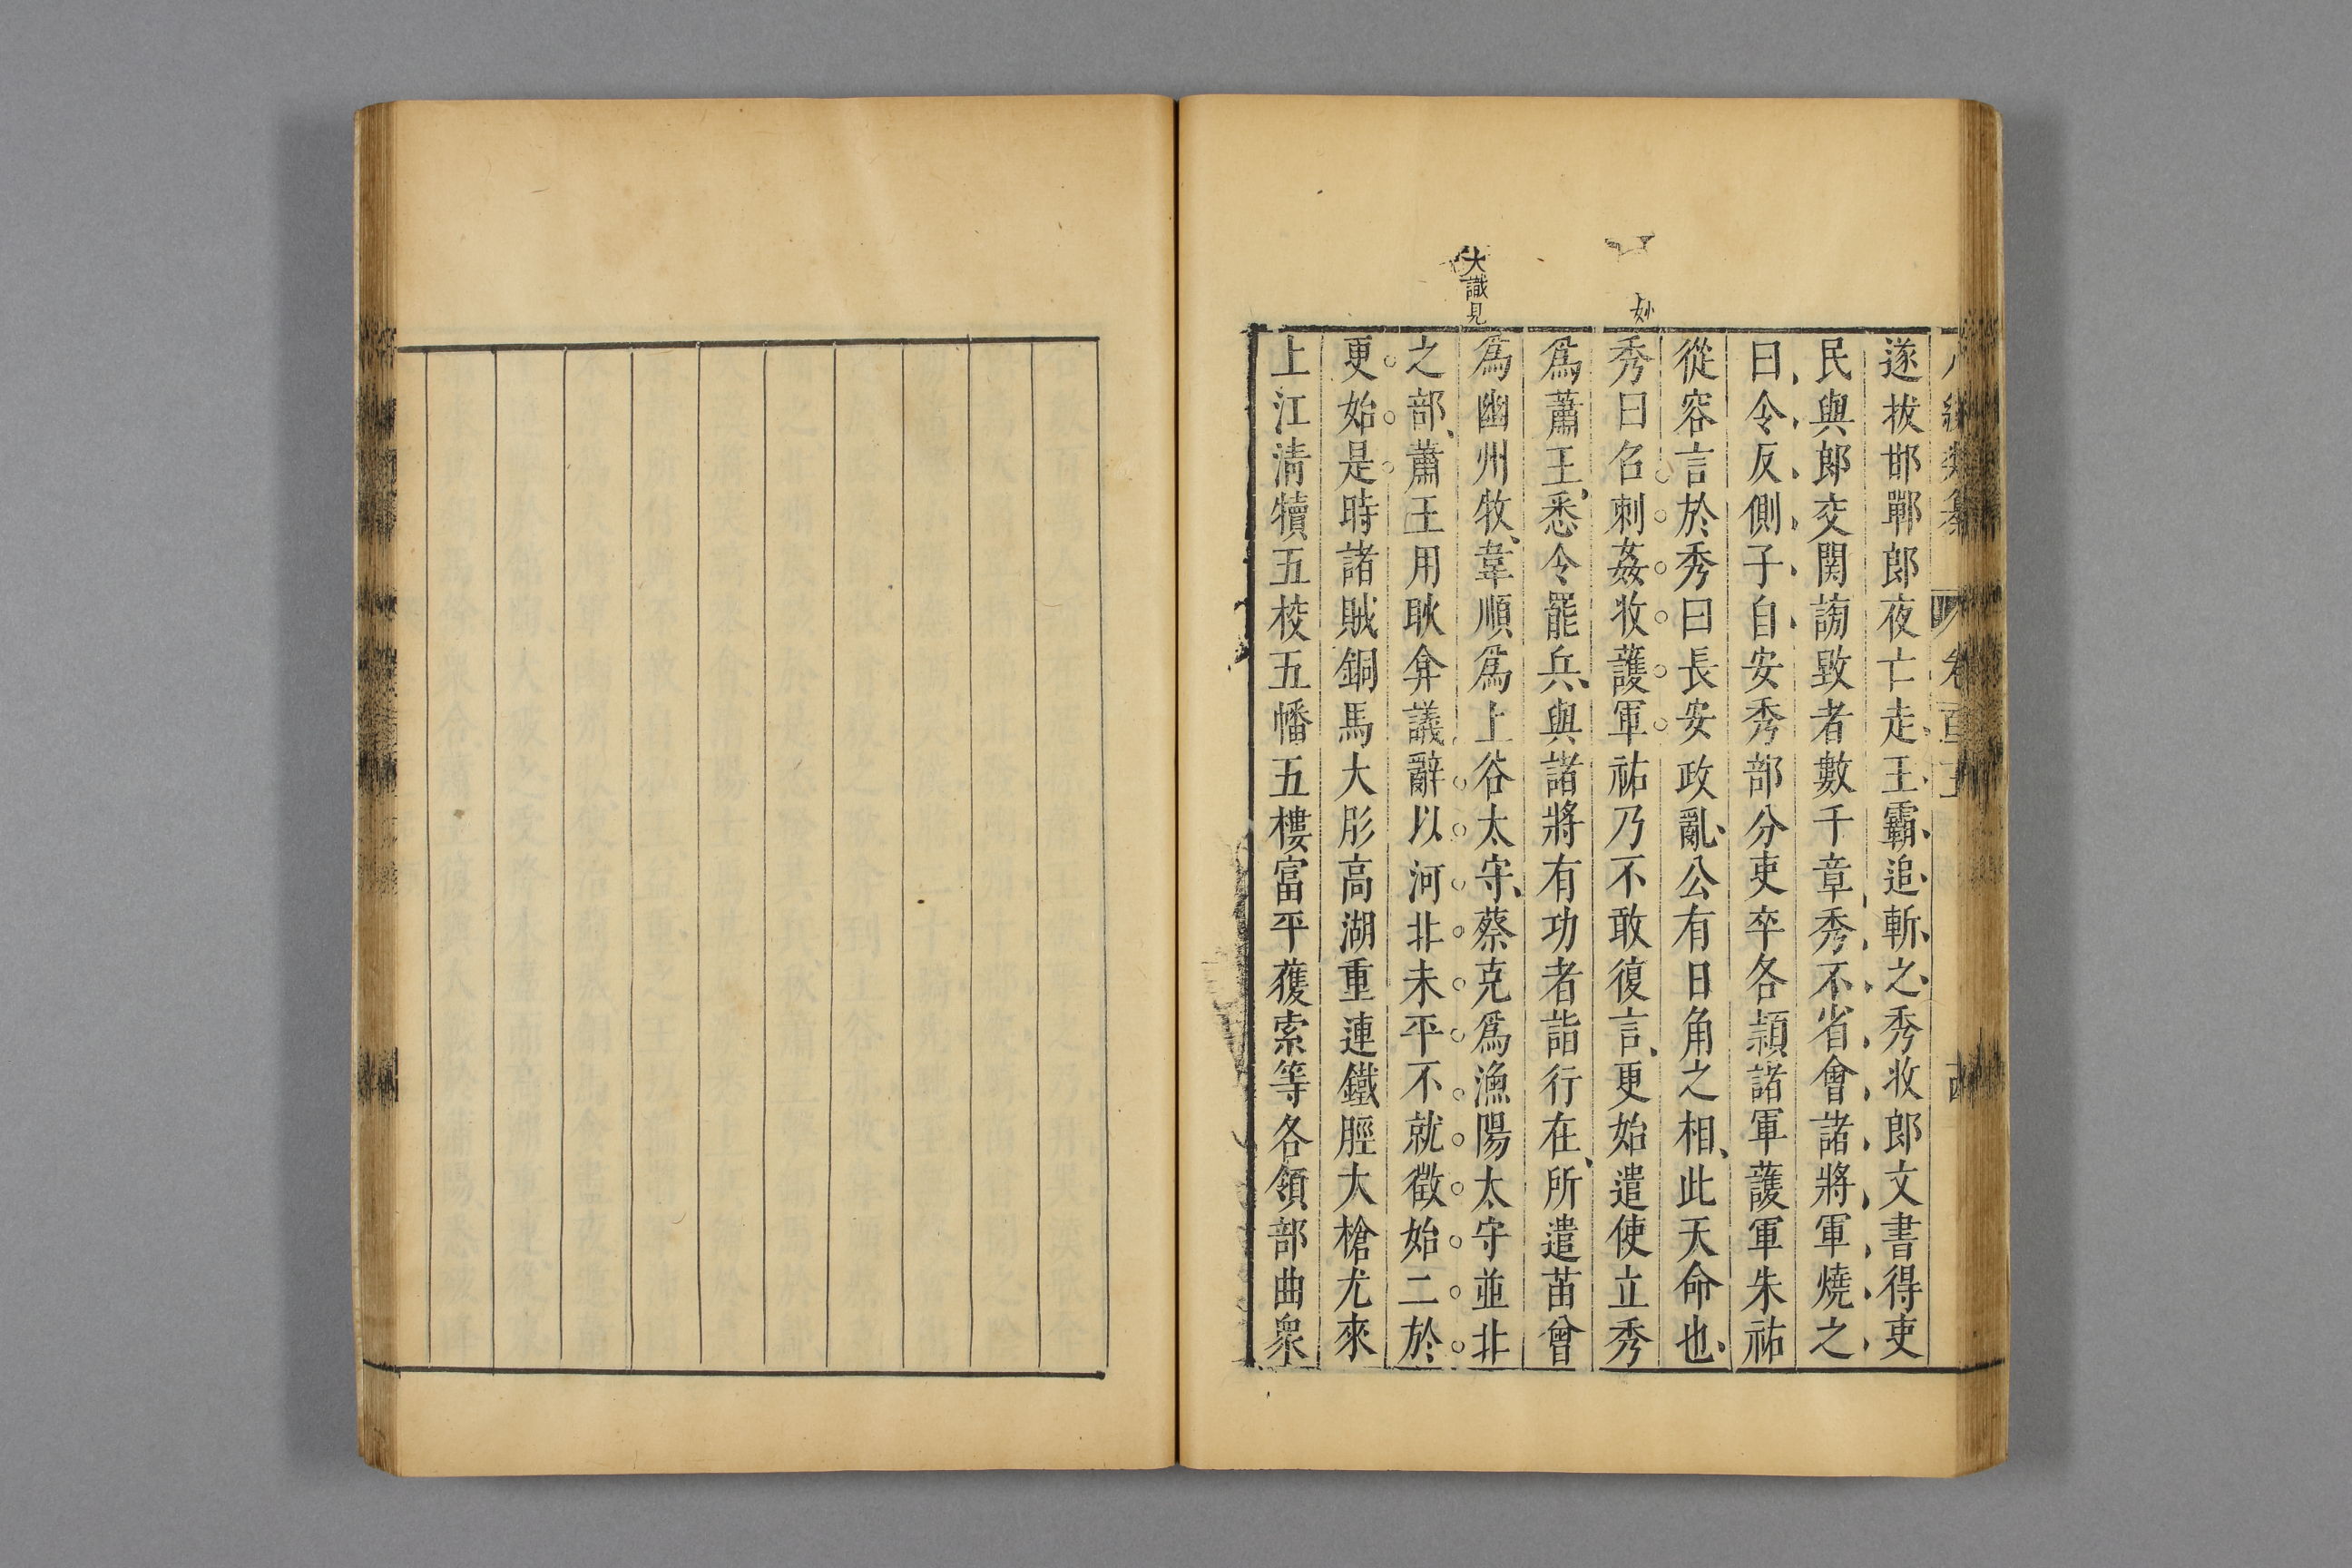 遂拔邯鄲郎夜亡走王霸追斬之秀收郎文書得吏
民與郎交関謗毀者數千章秀不省會諸將軍燒之
曰令反側子自安秀部分吏卒各顈諸軍護軍朱祐
從容言於秀曰長安政亂公有日角之相此天命也
妙
秀曰名刺姦收護軍祐乃不敢復言更始遣使立秀
爲蕭王悉令罷兵與諸將有功者詣行在所遣苗曾
大識見
爲幽州牧韋順爲上谷太守蔡克爲漁陽太守並北
之部蕭王用耿弇議辭以河北未平不就徵始二於
更始是時諸賊銅馬大肜高湖重連鐵脛大槍尤來
上江清犢五校五幡五樓富平獲索等各領部曲衆